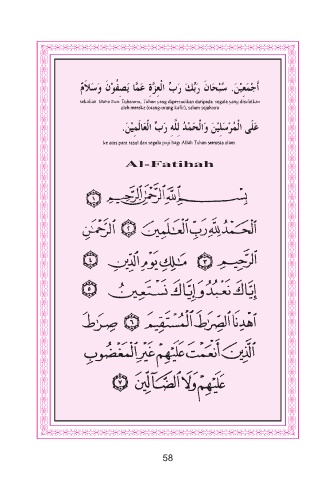 أَجْمَعِيْنَ. سُبْحَانَ رَبِّكَ رَبِّ الْعِزَّةِ عَمَّا يَصِفُوْنَ وَسَلَامٌ
sekalian. Maha Suci Tuhanmu, Tuhan yang dipersucikan daripada segala yang disifatkan
oleh mereka (orang-orang kafir), salam sejahtera
عَلَى الْمُرْسَلِيْنَ وَالْحَمْدُ لِلّٰهِ رَبِّ الْعَالَمِيْنَ.
ke atas para rasul dan segala puji bagi Allah Tuhan semesta alam
Al-Fatihah
بِسْمِ اللَّهِ الرَّحْمَٰنِ الرَّحِيمِ ١
الْحَمْدُ لِلَّهِ رَبِّ الْعَالَمِينَ ٢ الرَّحْمَٰنِ
الرَّحِيمِ ٣ مَالِكِ يَوْمِ الدِّينِ ٤
إِيَّاكَ نَعْبُدُ وَإِيَّاكَ نَسْتَعِينُ ٥
اهْدِنَا الصِّرَاطَ الْمُسْتَقِيمَ ٦ صِرَاطَ
الَّذِينَ أَنْعَمْتَ عَلَيْهِمْ غَيْرِ الْمَغْضُوبِ
عَلَيْهِمْ وَلَا الضَّالِّينَ ٧
58